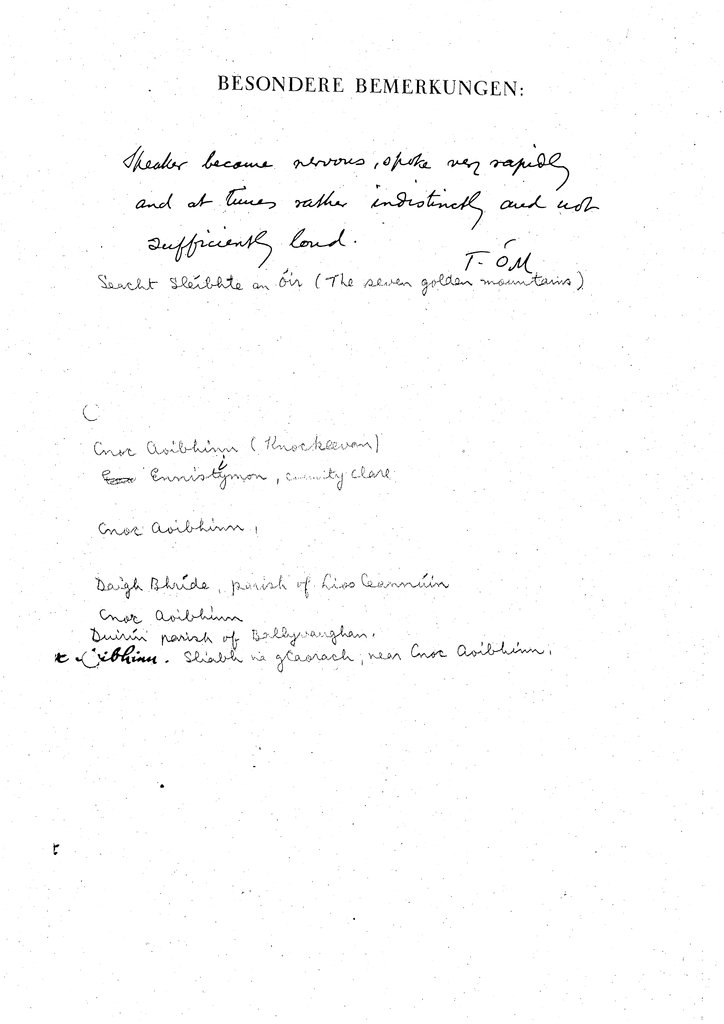 BESONDERE BEMERKUNGEN:
Speaker became nervous, spoke very rapidly
and at times rather indistinctly and not
sufficiently loud.
T. ÓM
Seacht Sléibhte an Óir (The seven golden mountains)
Cnoc Aoibhinn (Knockeevan)
Ennistymon, county Clare
Cnoc Aoibhinn,
Daigh Bhríde, parish of Lios Ceannúin
Cnoc Aoibhinn
parish of Ballyvaughan.
ibhinn. Sliabh na gCaorach, near Cnoc Aoibhinn.
t